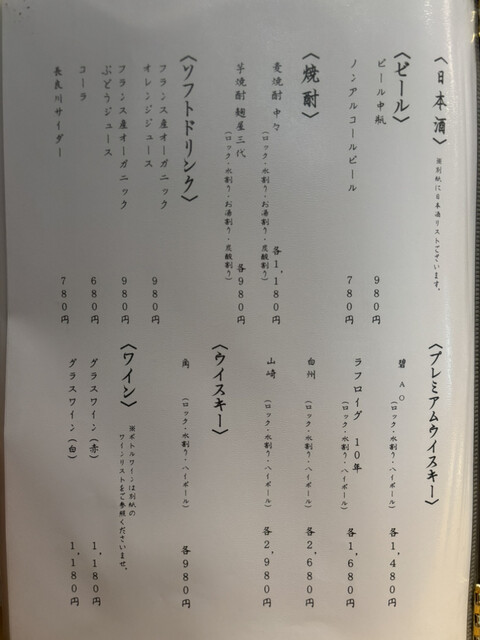 〈日本酒〉 ※別紙に日本酒リストございます。
〈ビール〉
ビール中瓶 980円
ノンアルコールビール 780円
〈焼酎〉
麦焼酎 中々 各1,180円
(ロック・水割り・お湯割り・炭酸割り)
芋焼酎 麹屋三代 各980円
(ロック・水割り・お湯割り・炭酸割り)
〈ソフトドリンク〉
フランス産オーガニック
オレンジジュース 980円
フランス産オーガニック
ぶどうジュース 980円
コーラ 680円
長良川サイダー 780円
〈プレミアムウイスキー〉
碧 AO (ロック・水割り・ハイボール) 各1,480円
ラフロイグ 10年 (ロック・水割り・ハイボール) 各1,680円
白州 (ロック・水割り・ハイボール) 各2,680円
山崎 (ロック・水割り・ハイボール) 各2,980円
〈ウイスキー〉
角 (ロック・水割り・ハイボール) 各980円
〈ワイン〉 ※ボトルワインは別紙の
ワインリストをご参照くださいませ。
グラスワイン(赤) 1,180円
グラスワイン(白) 1,180円